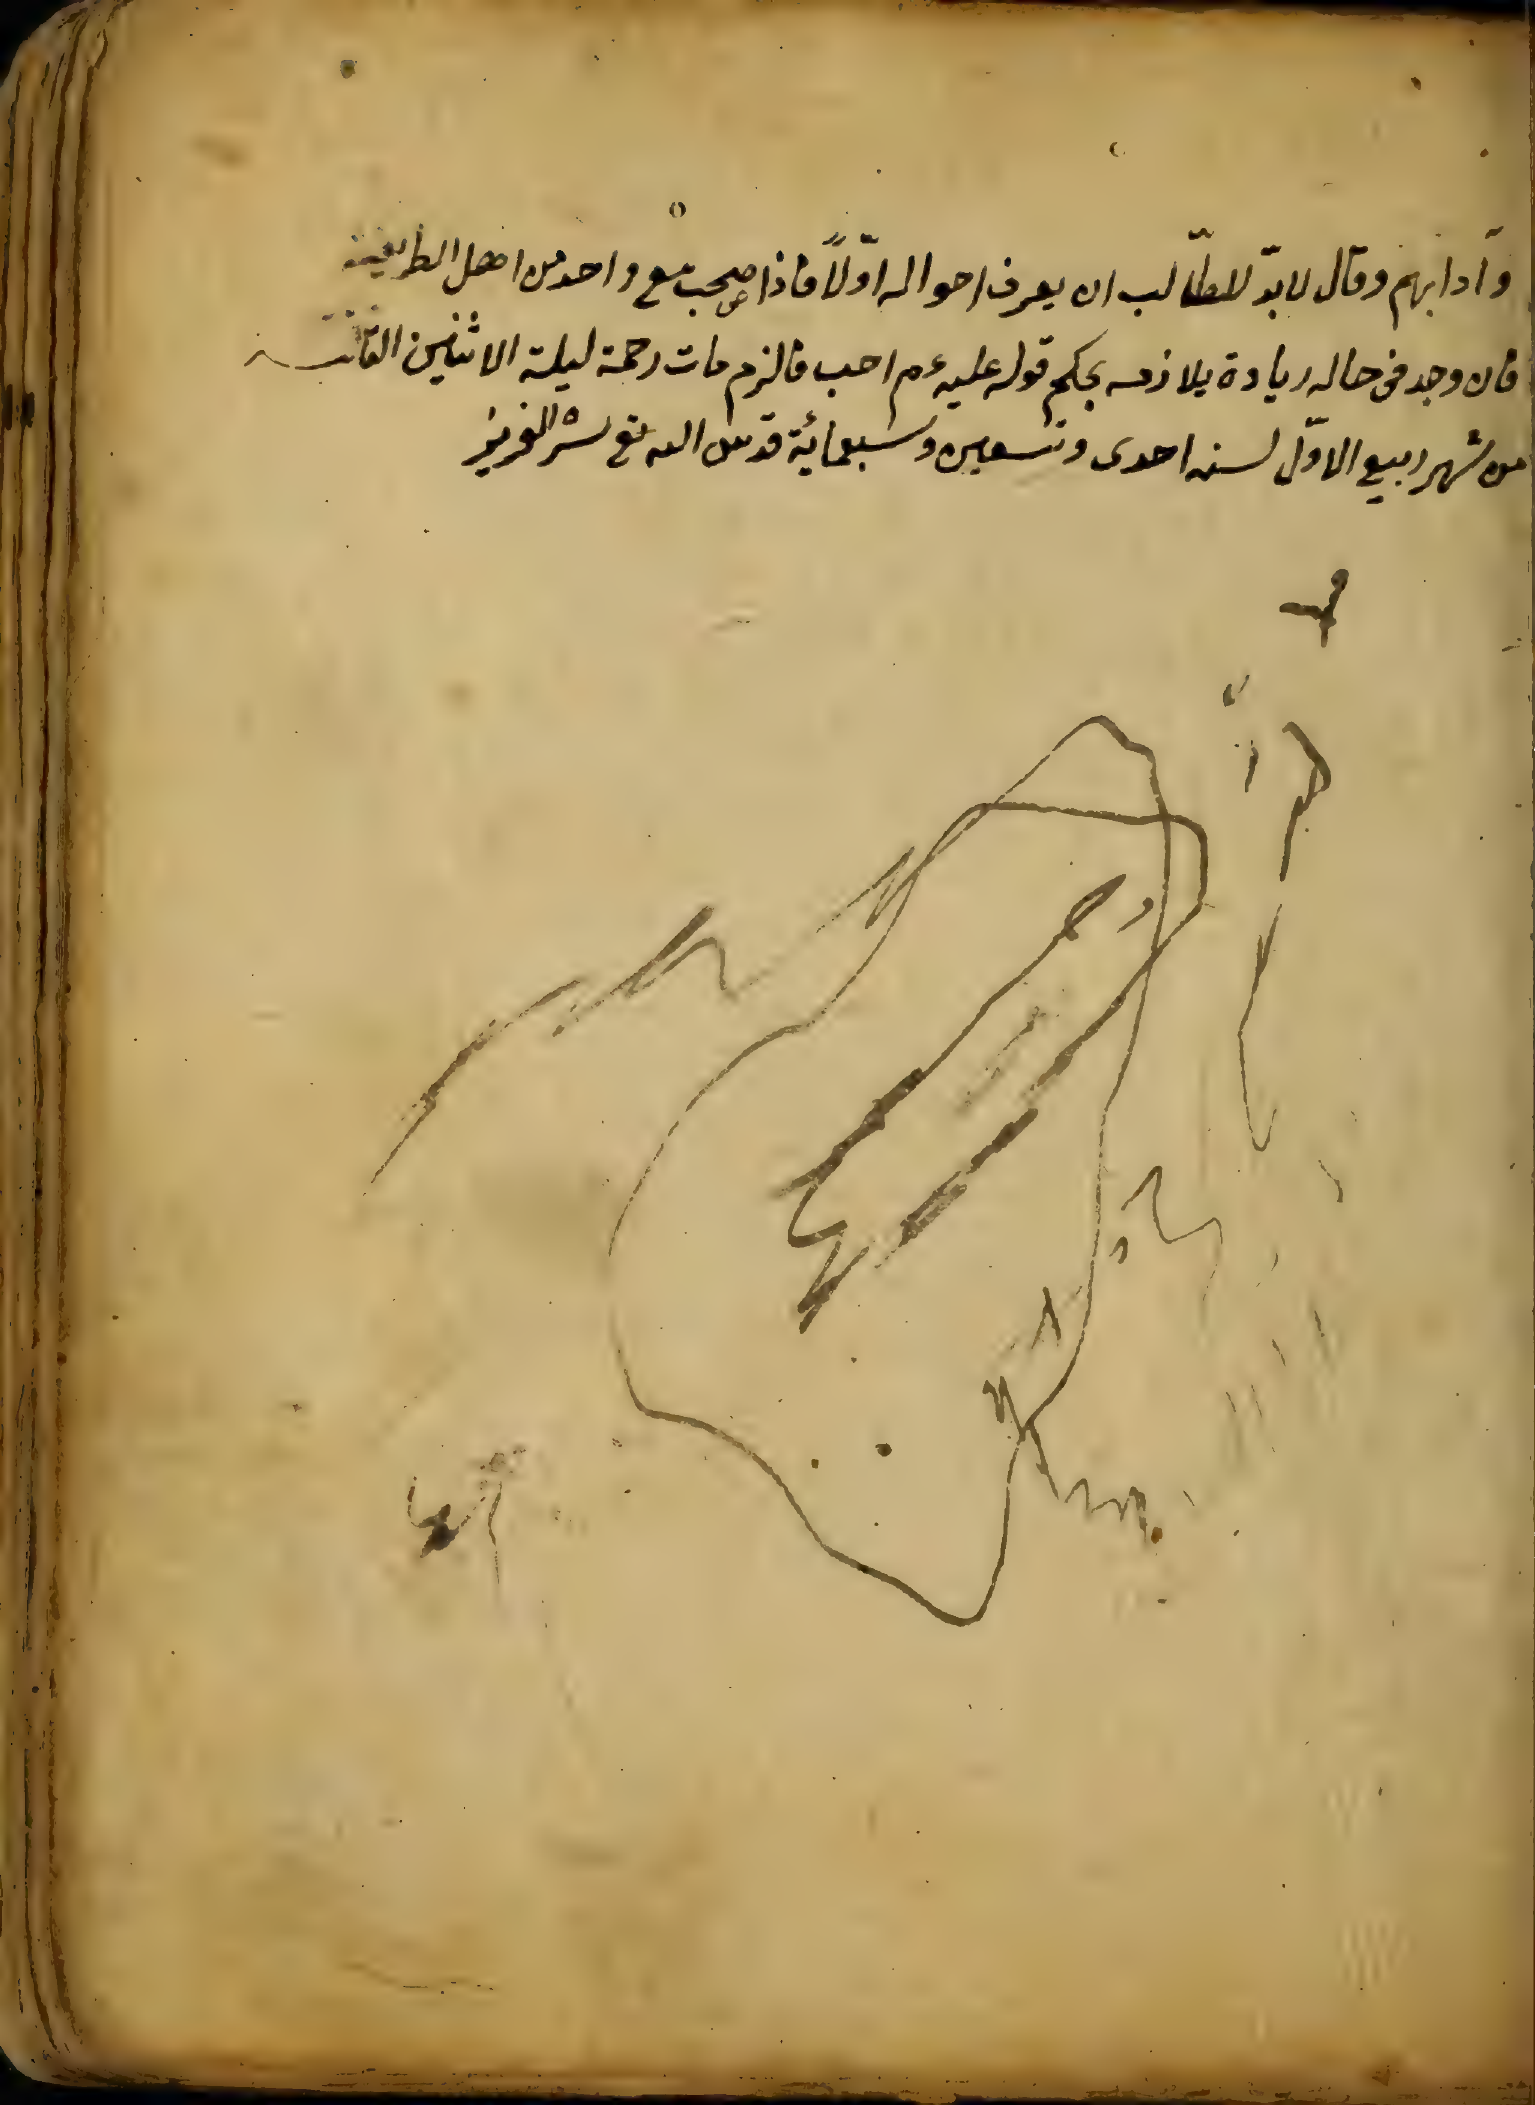 وآدابهم وقال لا بدّ للطّالب ان يعرف احواله اوّلاً فاذا صحب مع واحد من اهل الطريقة
فان وجد فى حاله زيادة يلازمه بحكم قوله عليه م احب فالزم مات رحمة ليلة الاثنين
من شهر ربيع الاوّل لسنه احدى وتسعين وسبعمائة قدس الله تع سره العزيز